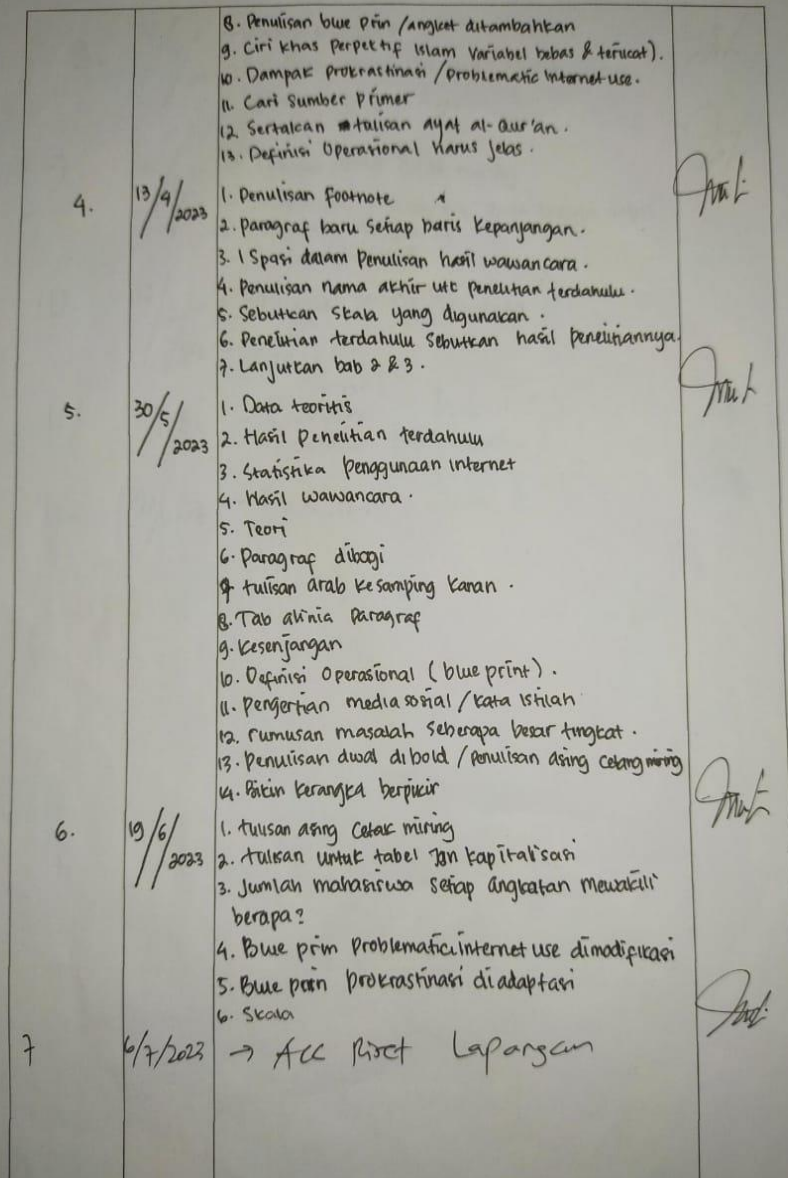 8. Penulisan blue prin /angket ditambahkan
9. Ciri khas Perpektif Islam Variabel bebas & terikat).
10. Dampak Prokrastinasi /Problematic Internet use.
11. Cari Sumber Primer
12. Sertakan tulisan ayat al-Qur'an.
13. Definisi Operasional harus jelas.
4.
13/4/2023
1. Penulisan footnote
2. Paragraf baru Setiap baris Kepanjangan.
3. 1 Spasi dalam Penulisan hasil wawancara.
4. Penulisan nama akhir utk penelitian terdahulu.
5. Sebutkan Skala yang digunakan.
6. Penelitian terdahulu Sebutkan hasil penelitiannya.
7. Lanjutkan bab 2 & 3.
5.
30/5/2023
1. Data teoritis
2. Hasil Penelitian terdahulu
3. Statistika Penggunaan Internet
4. Hasil wawancara.
5. Teori
6. Paragraf dibagi
7 tulisan arab kesamping kanan.
8. Tab alinia Paragraf
9. Kesenjangan
10. Definisi Operasional (blue print).
11. Pengertian media sosial / Kata Istilah
12. rumusan masalah Seberapa besar tingkat.
13. Penulisan awal di bold / Penulisan asing Cetang miring
14. Bikin Kerangka berpikir
6.
19/6/2023
1. tulisan asing Cetak miring
2. tulisan untuk tabel Jgn Kapitalisasi
3. Jumlah mahasiswa Setiap angkatan mewakili
berapa?
4. Blue prin Problematic internet use dimodifikasi
5. Blue prin Prokrastinasi di adaptasi
6. Skala
7
6/7/2023
→ Acc Riset Lapangan